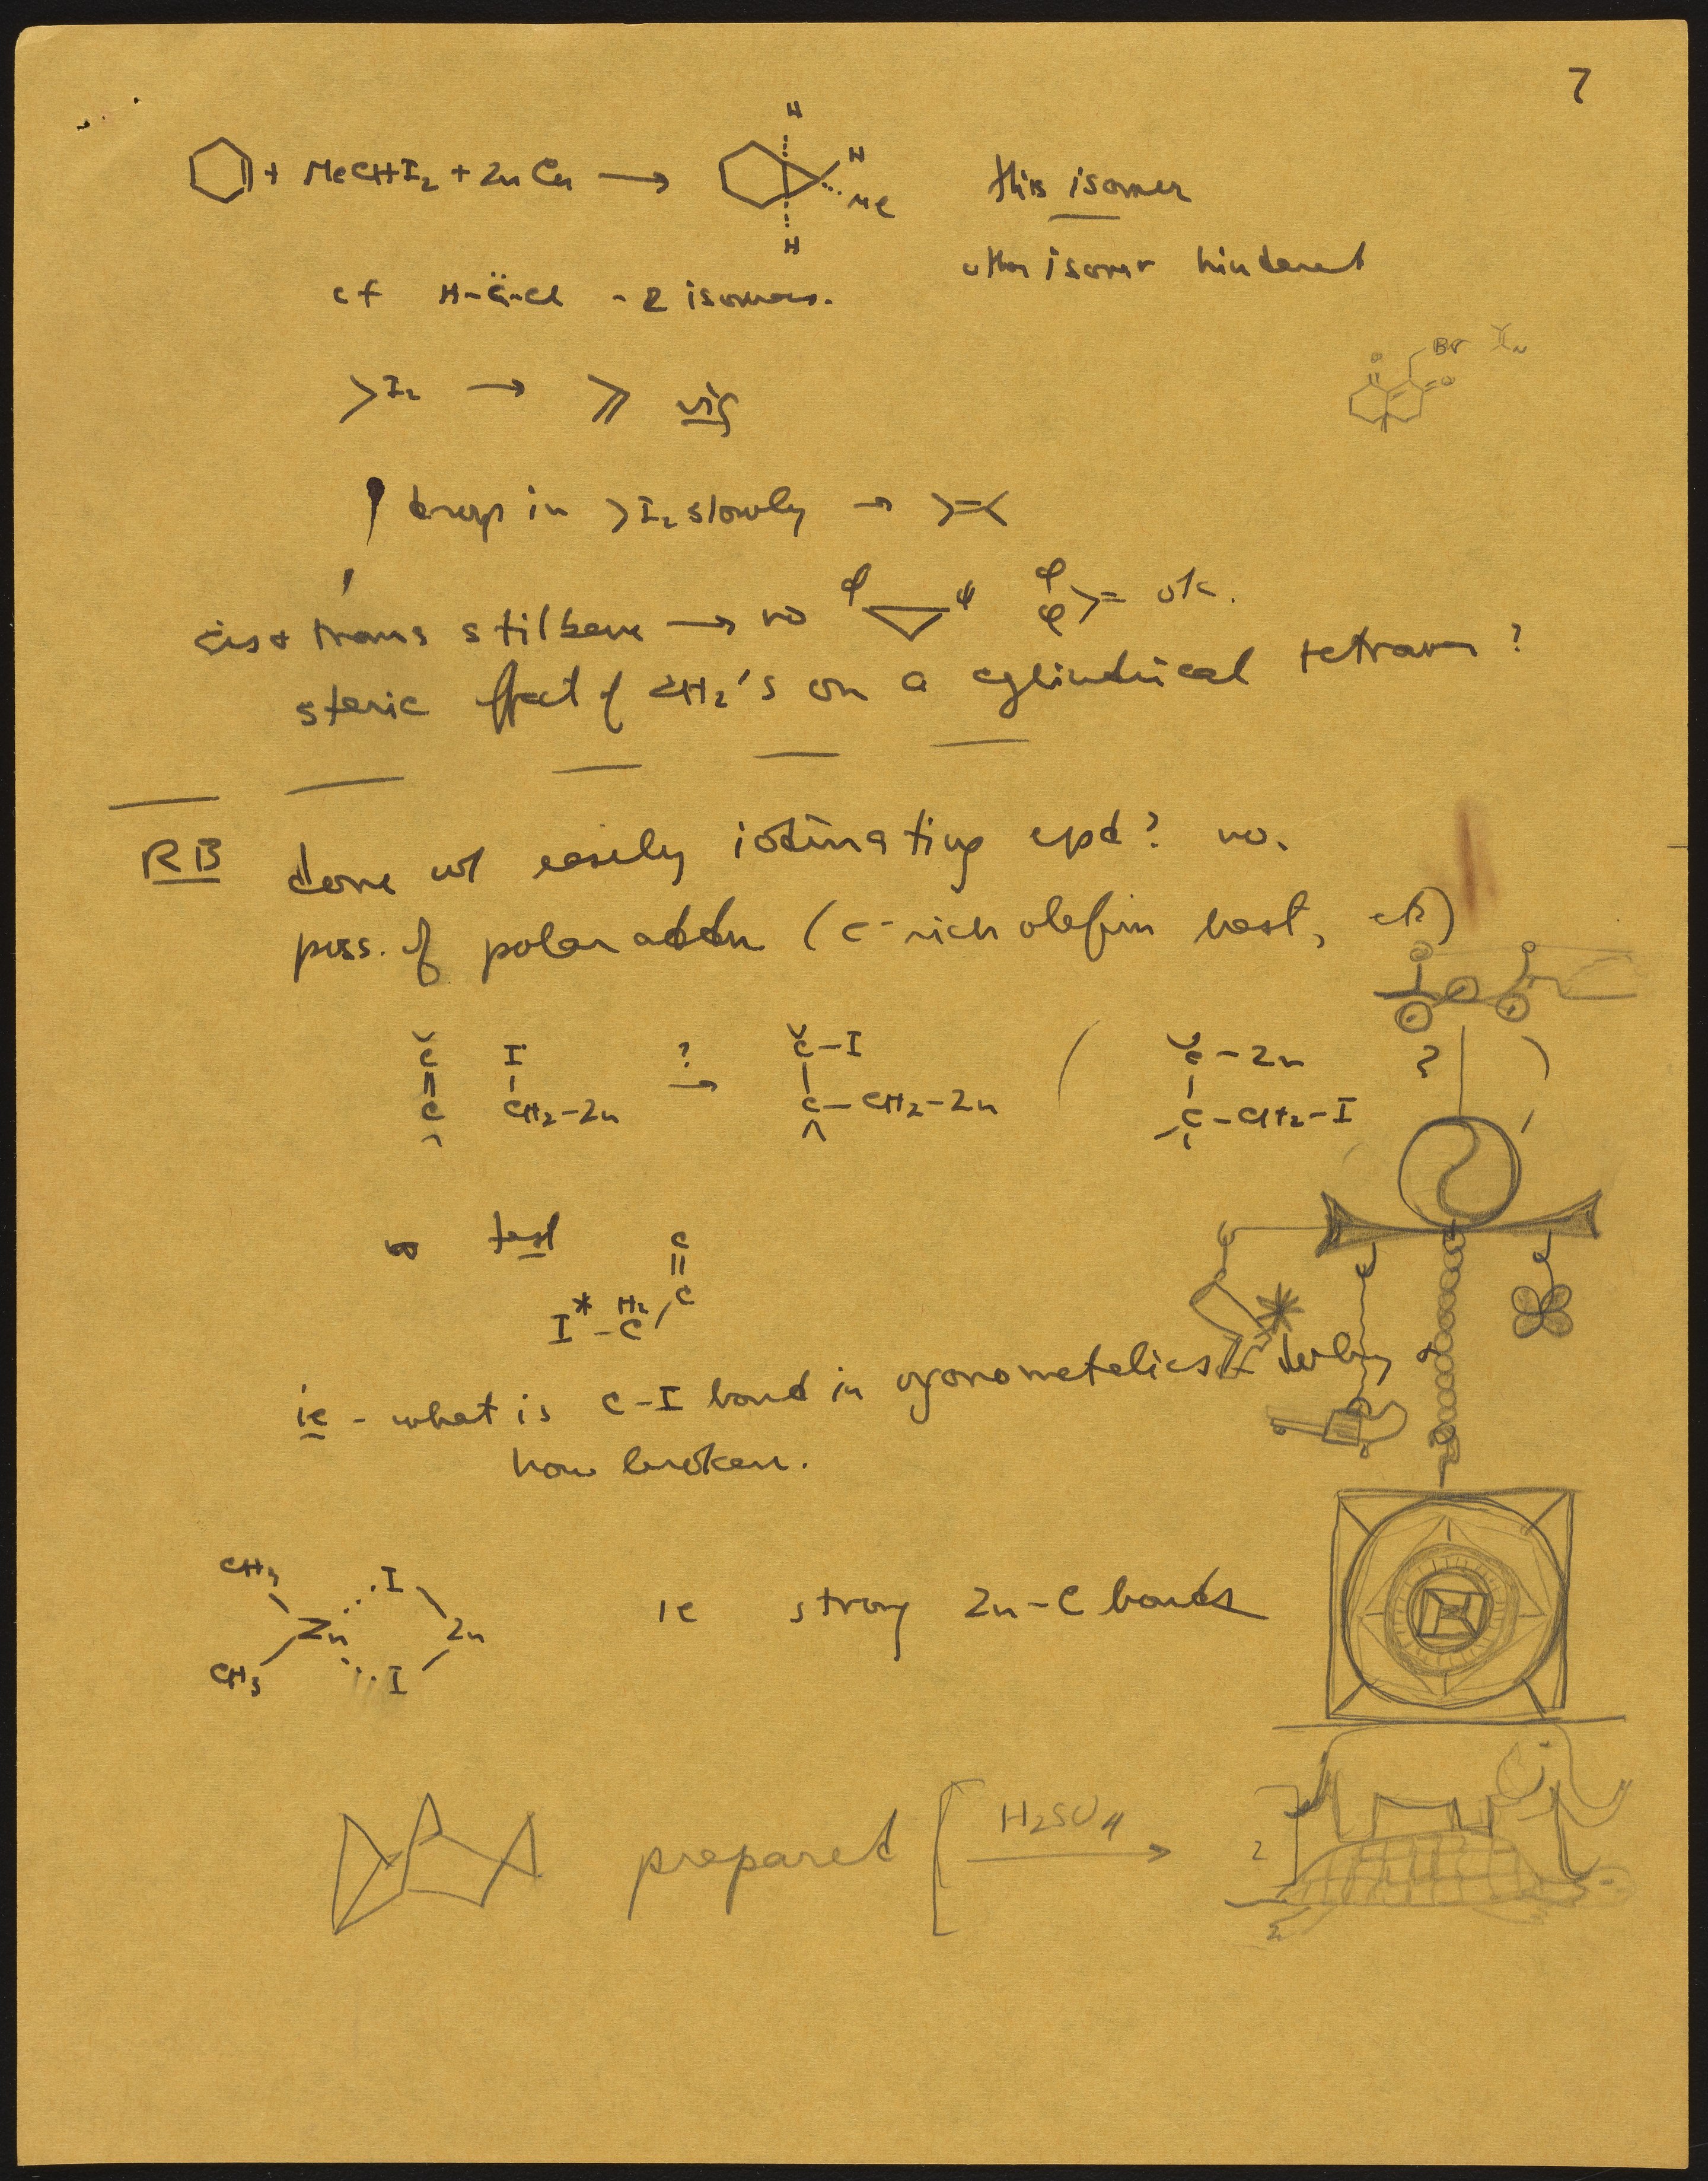 7
+ MeCHI₂ + ZnCu → H H Me H this isomer
other isomer hindered
cf H-C̈-Cl - 2 isomers.
Br Zn
O O
I₂ → vig
! drop in >I₂ slowly → >=<
cis & trans stilbene → no φ φ φ φ >= ok.
steric effect of CH₂'s on a cylindrical ?
RB done w/ easily iodinating cpd? no.
poss. of polar addn (e⁻ rich olefin best, etc)
C I ? C-I ( C-Zn ? )
C CH₂-Zn → C-CH₂-Zn C-CH₂-I
test C
I* - C H₂ C
ie - what is C-I bond in organometallics &
how broken.
CH₃ I
Zn Zn ie strong Zn-C bonds
CH₃ I
prepared [ H₂SO₄ →